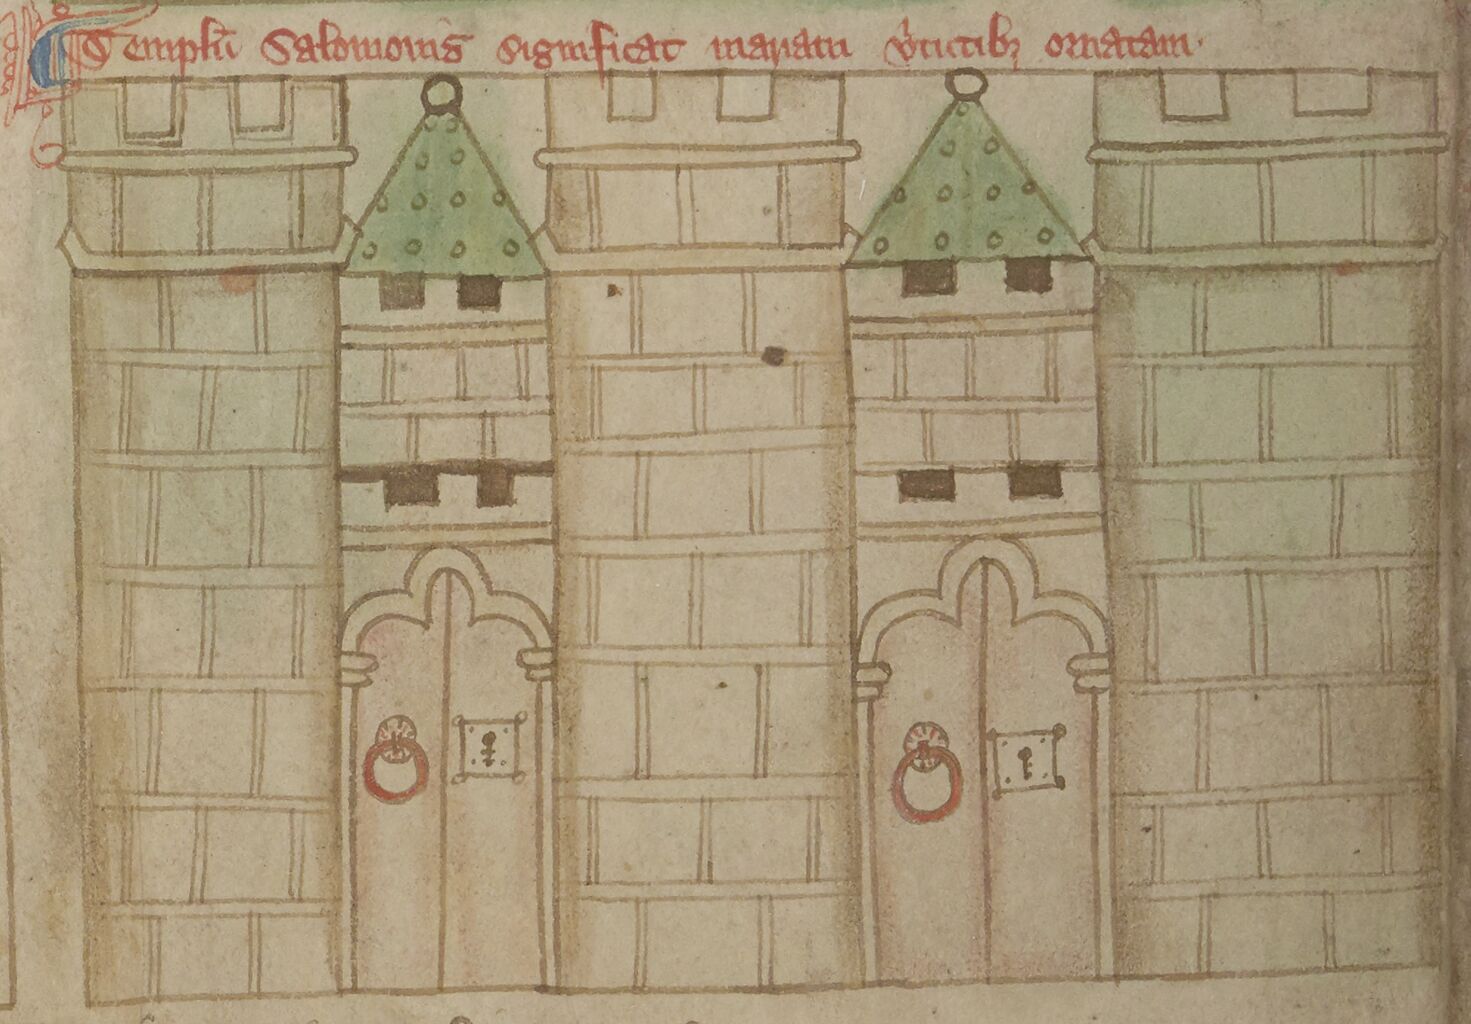 Templũ Salomonis significat mariam v̉tutibꝫ ornatam.